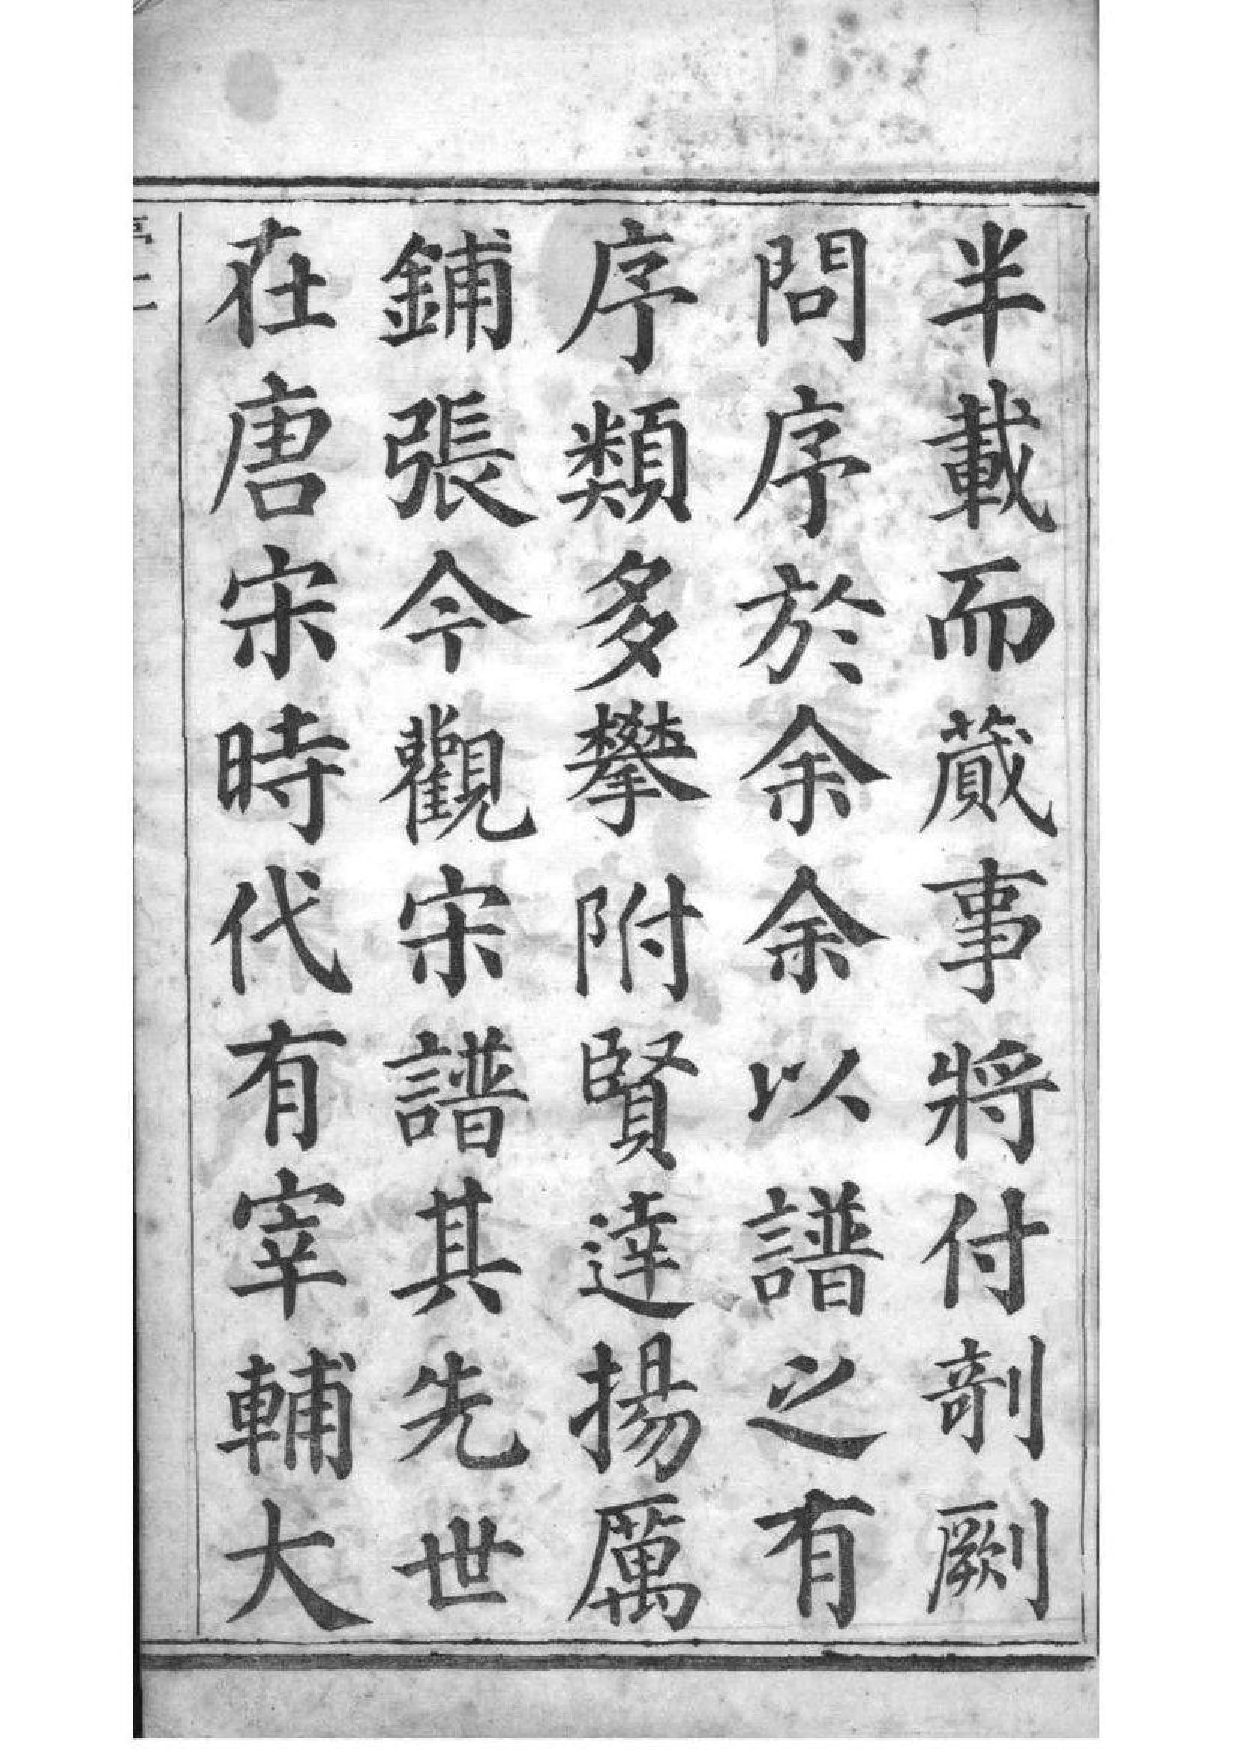 半載而蕆事將付剞劂
問序於余余以譜之有
序類多攀附賢達揚厲
鋪張今觀宋譜其先世
在唐宋時代有宰輔大